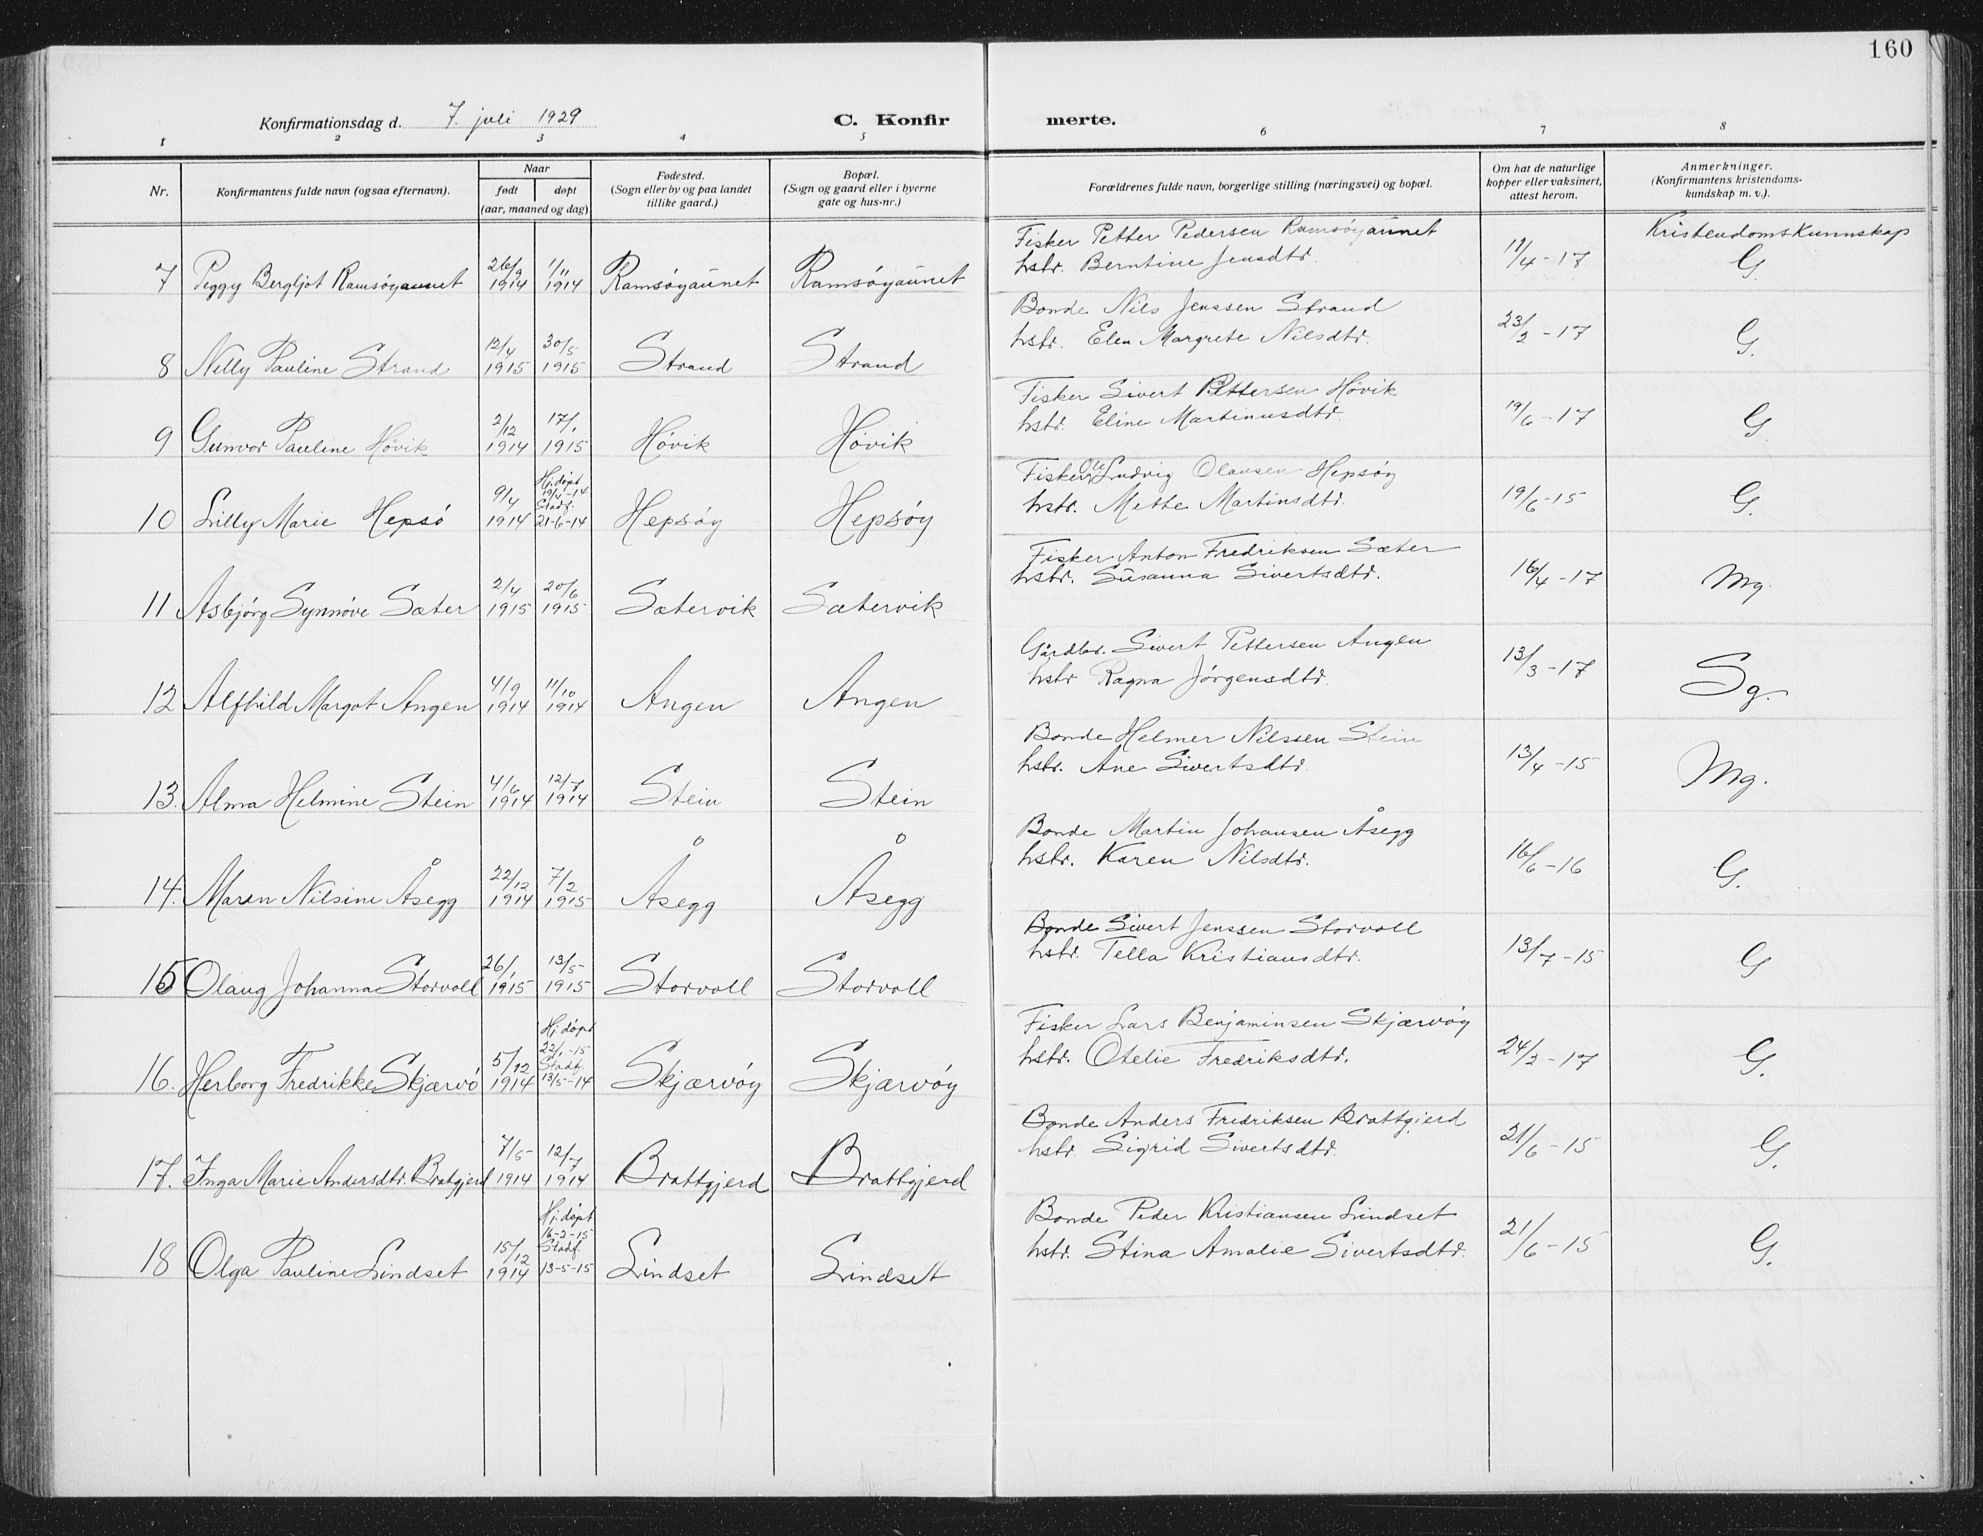 160
Konfirmationsdag d. 7. juli 1929
C. Konfirmerte.
1 2 3 4 5 6 7 8
Nr.
Konfirmantens fulde navn (ogsaa efternavn).
Naar
født døpt
(aar, maaned og dag)
Fødested.
(Sogn eller by og paa landet
tillike gaard.)
Bopæl.
(Sogn og gaard eller i byerne
gate og hus-nr.)
Forældrenes fulde navn, borgerlige stilling (næringsvei) og bopæl.
Om hat de naturlige
kopper eller vaksinert,
attest herom.
Anmerkninger.
(Konfirmantens kristendoms-
kundskap m. v.).
Kristendomskunnskap
Fisker Petter Pedersen Ramsøyaunet
hstr. Berntine Jensdtr.
7 Peggy Bergljot Ramsøyaunet 26/9 1914 1/11 1914 Ramsøyaunet Ramsøyaunet 11/4-17 G.
Bonde Nils Jenssen Strand
hstr. Elen Margrete Nilsdtr.
8 Nelly Pauline Strand 12/4 1915 30/5 1915 Strand Strand 23/3-17 G.
Fisker Sivert Pettersen Høvik
hstr. Eline Martinusdtr.
9 Gunvor Pauline Høvik 2/12 1914 17/1 1915 Høvik Høvik 19/6-17 G
Fisker Ole Ludvig Olausen Hepsøy
hstr. Mette Martinsdtr.
10 Lilly Marie Hepsø 9/4 1914 Hj.døpt 19/4-14 Stadf. 21-6-14 Hepsøy Hepsøy 19/6-15 G.
Fisker Anton Fredriksen Sæter
hstr. Susanna Sivertsdtr.
11 Asbjørg Synnøve Sæter 2/4 1915 20/6 1915 Sætervik Sætervik 16/4-17 Mg.
Gårdbr. Sivert Pettersen Angen
hstr Ragna Jørgensdtr.
12 Alfhild Margot Angen 4/9 1914 11/10 1914 Angen Angen 13/3-17 Sg.
Bonde Helmer Nilssen Stein
hstr. Ane Sivertsdtr.
13. Alma Helmine Stein 4/6 1914 12/7 1914 Stein Stein 13/4-15 Mg.
Bonde Martin Johansen Åsegg
hstr. Karen Nilsdtr.
14. Maren Nilsine Åsegg 22/12 1914 7/2 1915 Åsegg Åsegg 16/6-16 G.
Bonde Sivert Jenssen Storvoll
hstr. Tella Kristiansdtr.
15 Olaug Johanna Storvoll 26/1 1915 13/5 1915 Storvoll Storvoll 13/7-15 G
Fisker Lars Benjaminsen Skjærvøy
hstr. Otelie Fredriksdtr.
16. Herborg Fredrikke Skjærvø 5/12 1914 Hj.døpt 22/1-15 Stadf. 13/5-14 Skjærvøy Skjærvøy 24/3-17 G.
Bonde Anders Fredriksen Brattgjerd
hstr. Sigrid Sivertsdtr.
17. Inga Marie Andersdtr. Bratgjerd 7/5 1914 12/7 1914 Brattgjerd Brattgjerd 21/6-15 G.
Bonde Peder Kristiansen Lindset
hstr. Stina Amalie Sivertsdtr.
18 Olga Pauline Lindset 15/12 1914 Hj.døpt 16-2-15 Stadf. 13-5-15 Lindset Lindset 21/6-15 G.